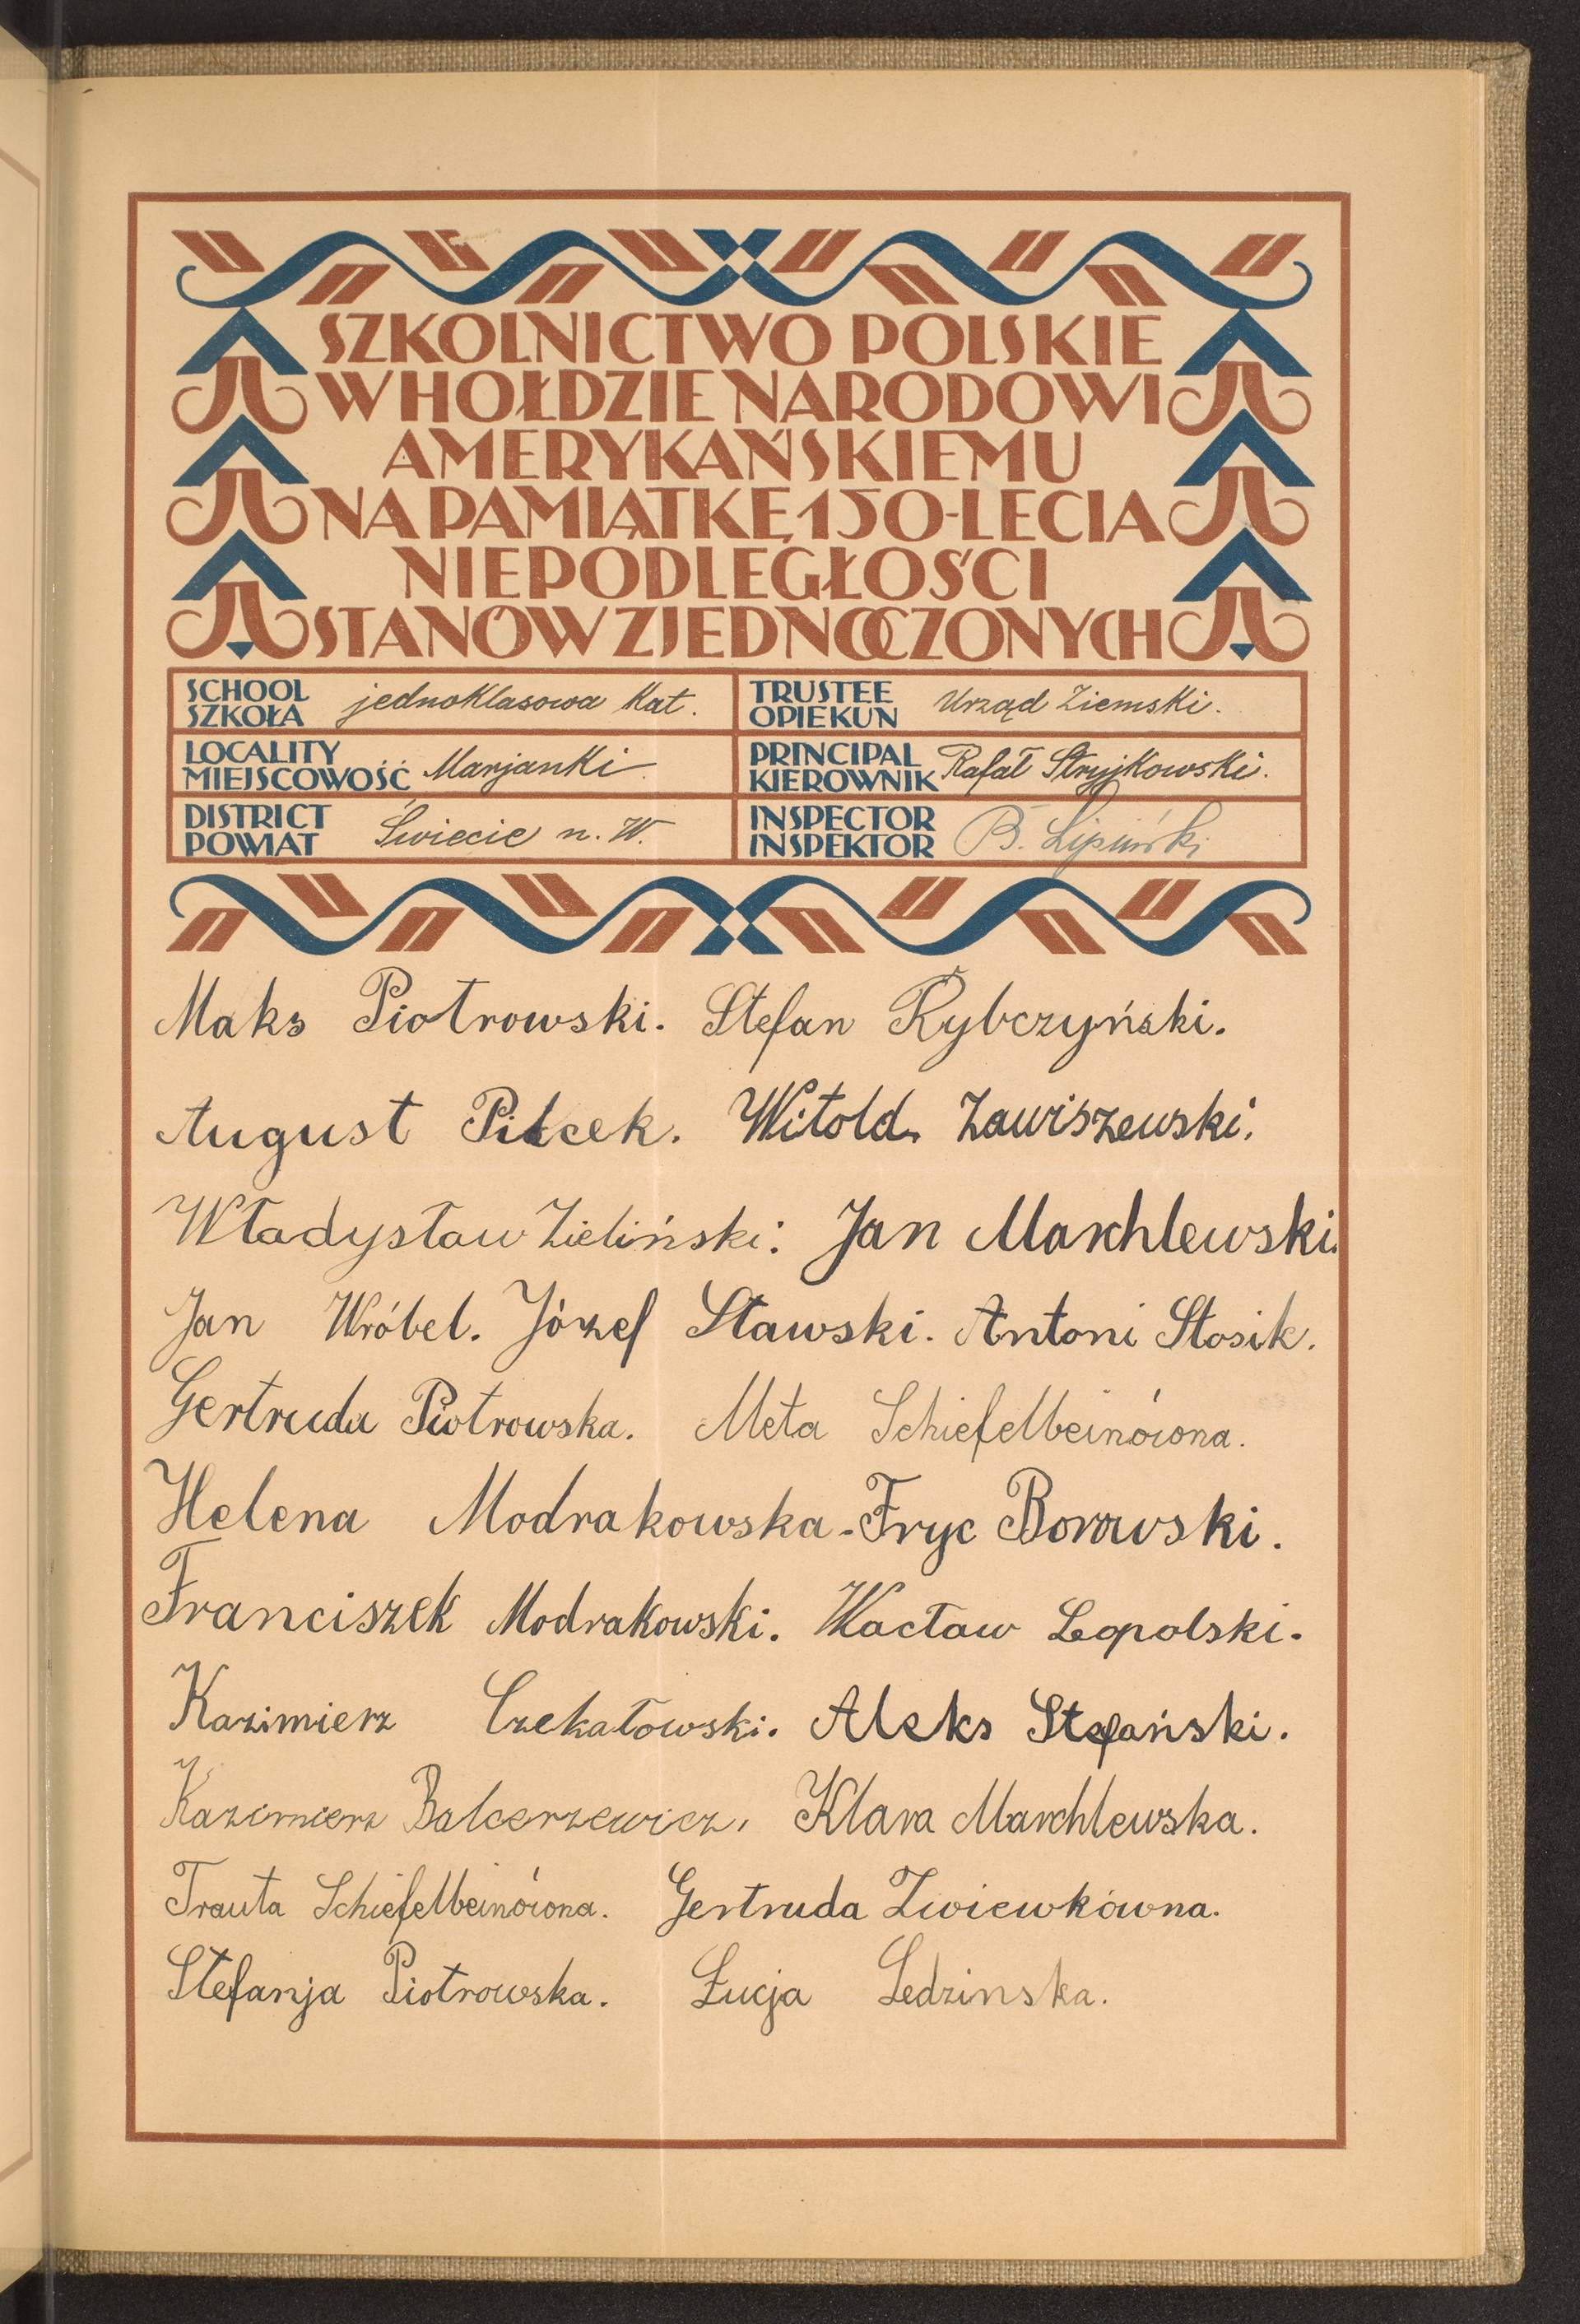 SZKOLNICTWO POLSKIE
W HOŁDZIE NARODOWI
AMERYKAŃSKIEMU
NA PAMIĄTKĘ 150-LECIA
NIEPODLEGŁOŚCI
STANÓW ZJEDNOCZONYCH
SCHOOL
SZKOŁA jednoklasowa kat.
TRUSTEE
OPIEKUN Urząd Ziemski.
LOCALITY
MIEJSCOWOŚĆ Marjanki
PRINCIPAL
KIEROWNIK Rafał Stryjkowski.
DISTRICT
POWIAT Świecie n. W.
INSPECTOR
INSPEKTOR B. Lipiński
Maks Piotrowski. Stefan Rybczyński.
August Witold. Zawiszewski.
Władysław Zieliński. Jan Marchlewski.
Jan Wróbel. Józef Sławski. Antoni Stosik.
Gertruda Piotrowska. Meta Schiefelbeinówna.
Helena Modrakowska. Fryc Borowski.
Franciszek Modrakowski. Wacław Lepolski.
Kazimierz Czekałowski. Aleks Stefański.
Kazimierz Balcerzewicz. Klara Marchlewska.
Trauta Schiefelbeinówna. Gertruda Zwiewkówna.
Stefanja Piotrowska. Łucja Ledzinska.